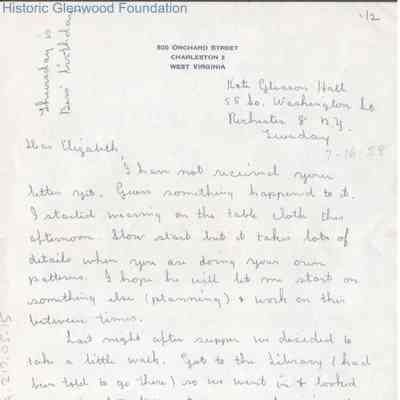 Historic Glenwood Foundation
1/2
Thursday is
Bess' birthday
500 ORCHARD STREET
CHARLESTON 2
WEST VIRGINIA
Kate Gleason Hall
55 So. Washington St
Rochester 8 N.Y.
Tuesday
7-16-58
Dear Elizabeth,
I have not received your
letter yet. Guess something happend to it.
I started weaving on the table cloth this
afternoon. Slow start but it takes lots of
details when you are doing your own
patterns. I hope he will let me start on
something else (planning) & work on this
between times.
Last night after supper we decided to
take a little walk. Got to the Library (had
been told to go there) so we went in & looked
219.05.15